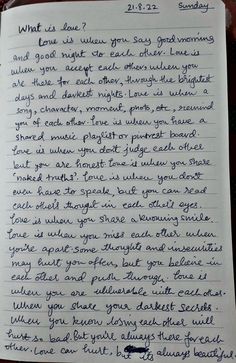 21.8.22 Sunday
What is love?
Love is when you say good morning
and good night to each other. Love is
when you accept each other. when you
are there for each other, through the brightest
days and darkest nights. Love is when a
song, character, moment, photo, etc., remind
you of each other. Love is when you have a
shared music playlist or pintrest board.
Love is when you don't judge each other
but you are honest. Love is when you share
'naked truths'. Love is when you don't
even have to speak, but you can read
each other's thought in each other's eyes.
Love is when you share a knowing smile.
Love is when you miss each other when
you're apart. Some thoughts and insecurities
may hurt you often, but you believe in
each other and push through. Love is
when you are vulnerable with each other.
When you share your darkest secrets.
When you know losing each other will
hurt so bad. But you're always there for each
other. Love can hurt, but its always beautiful.